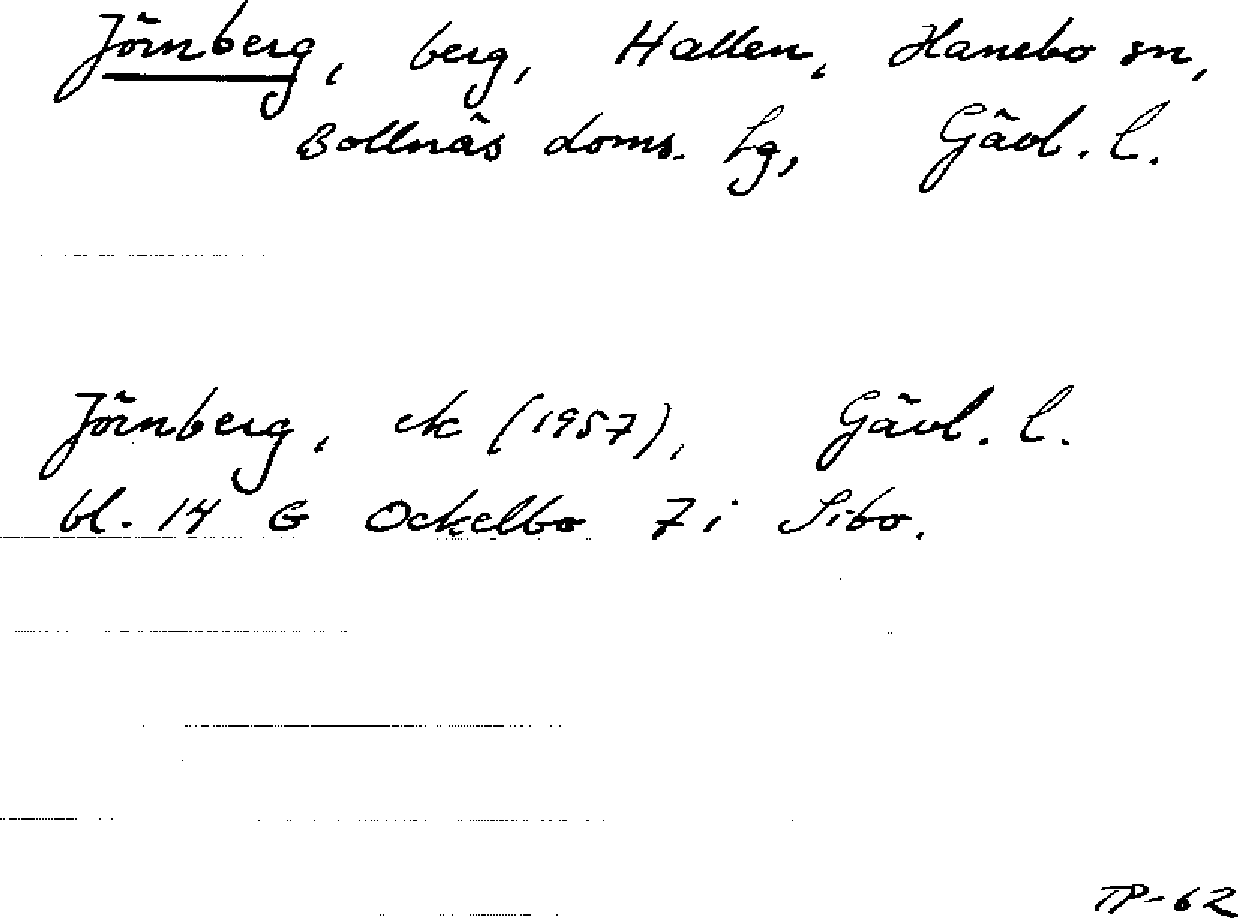 Jörnberg, berg, Hallen, Hanebo sn,
Bollnäs doms. hg, Gävl. l.
Jörnberg, ek (1957), Gävl. l.
bl. 14 G Ockelbo 7i Sibo.
TP-62